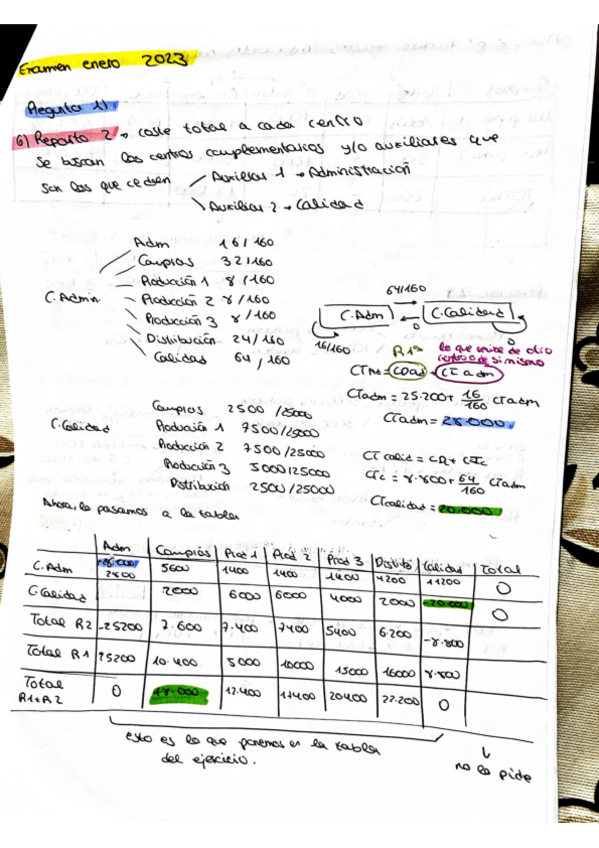 Examen enero 2023
Pregunta 1)
6) Reparto 2 → coste total a cada centro
Se buscan los centros complementarios y/o auxiliares que
son los que ceden
Auxiliar 1 → Administración
Auxiliar 2 → Calidad
C. Admin
Adm 16/160
Compras 32/160
Producción 1 8/160
Producción 2 8/160
Producción 3 8/160
Distribución 24/160
Calidad 64/160
64/160
C. Adm C. Calidad
0
0
16/160
R1º
lo que recibe de otro
centro o de si mismo
CTadm = 25.200 + 16/160 CTadm
CTadm = 28.000
C. Calidad
Compras 2500/25000
Producción 1 7500/25000
Producción 2 7500/25000
Producción 3 5000/25000
Distribución 2500/25000
CTc = 8.800 + 64/160 CTadm
CTcalidad = 20.000
Ahora lo pasamos a la tabla
Adm Compras Prod 1 Prod 2 Prod 3 Distrib Calidad Total
C. Adm -28.000 2800 5600 1400 1400 1400 4200 11200 0
C. Calidad 2000 6000 6000 4000 2000 -20.000 0
Total R2 -25200 7.600 7.400 7400 5400 6.200 -8.800
Total R1 25200 10.400 5000 10000 15000 16000 8.800
Total R1+R2 0 18.000 12.400 17400 20400 22.200 0
esto es lo que ponemos en la tabla
del ejercicio.
no lo pide